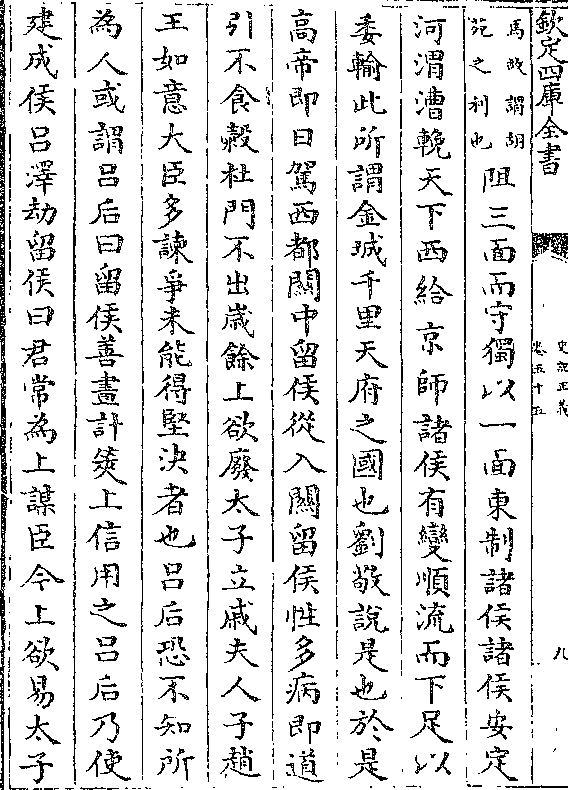 欽定四庫全書
史記正義
卷五十五
九
馬故謂胡
苑之利也
阻三面而守獨以一面東制諸侯諸侯安定
河渭漕輓天下西給京師諸侯有變順流而下足以
委輸此所謂金城千里天府之國也劉敬說是也於是
高帝即日駕西都關中留侯從入關留侯性多病即道
引不食穀杜門不出歲餘上欲廢太子立戚夫人子趙
王如意大臣多諫爭未能得堅決者也呂后恐不知所
為人或謂呂后曰留侯善畫計筴上信用之呂后乃使
建成侯呂澤劫留侯曰君常為上謀臣今上欲易太子